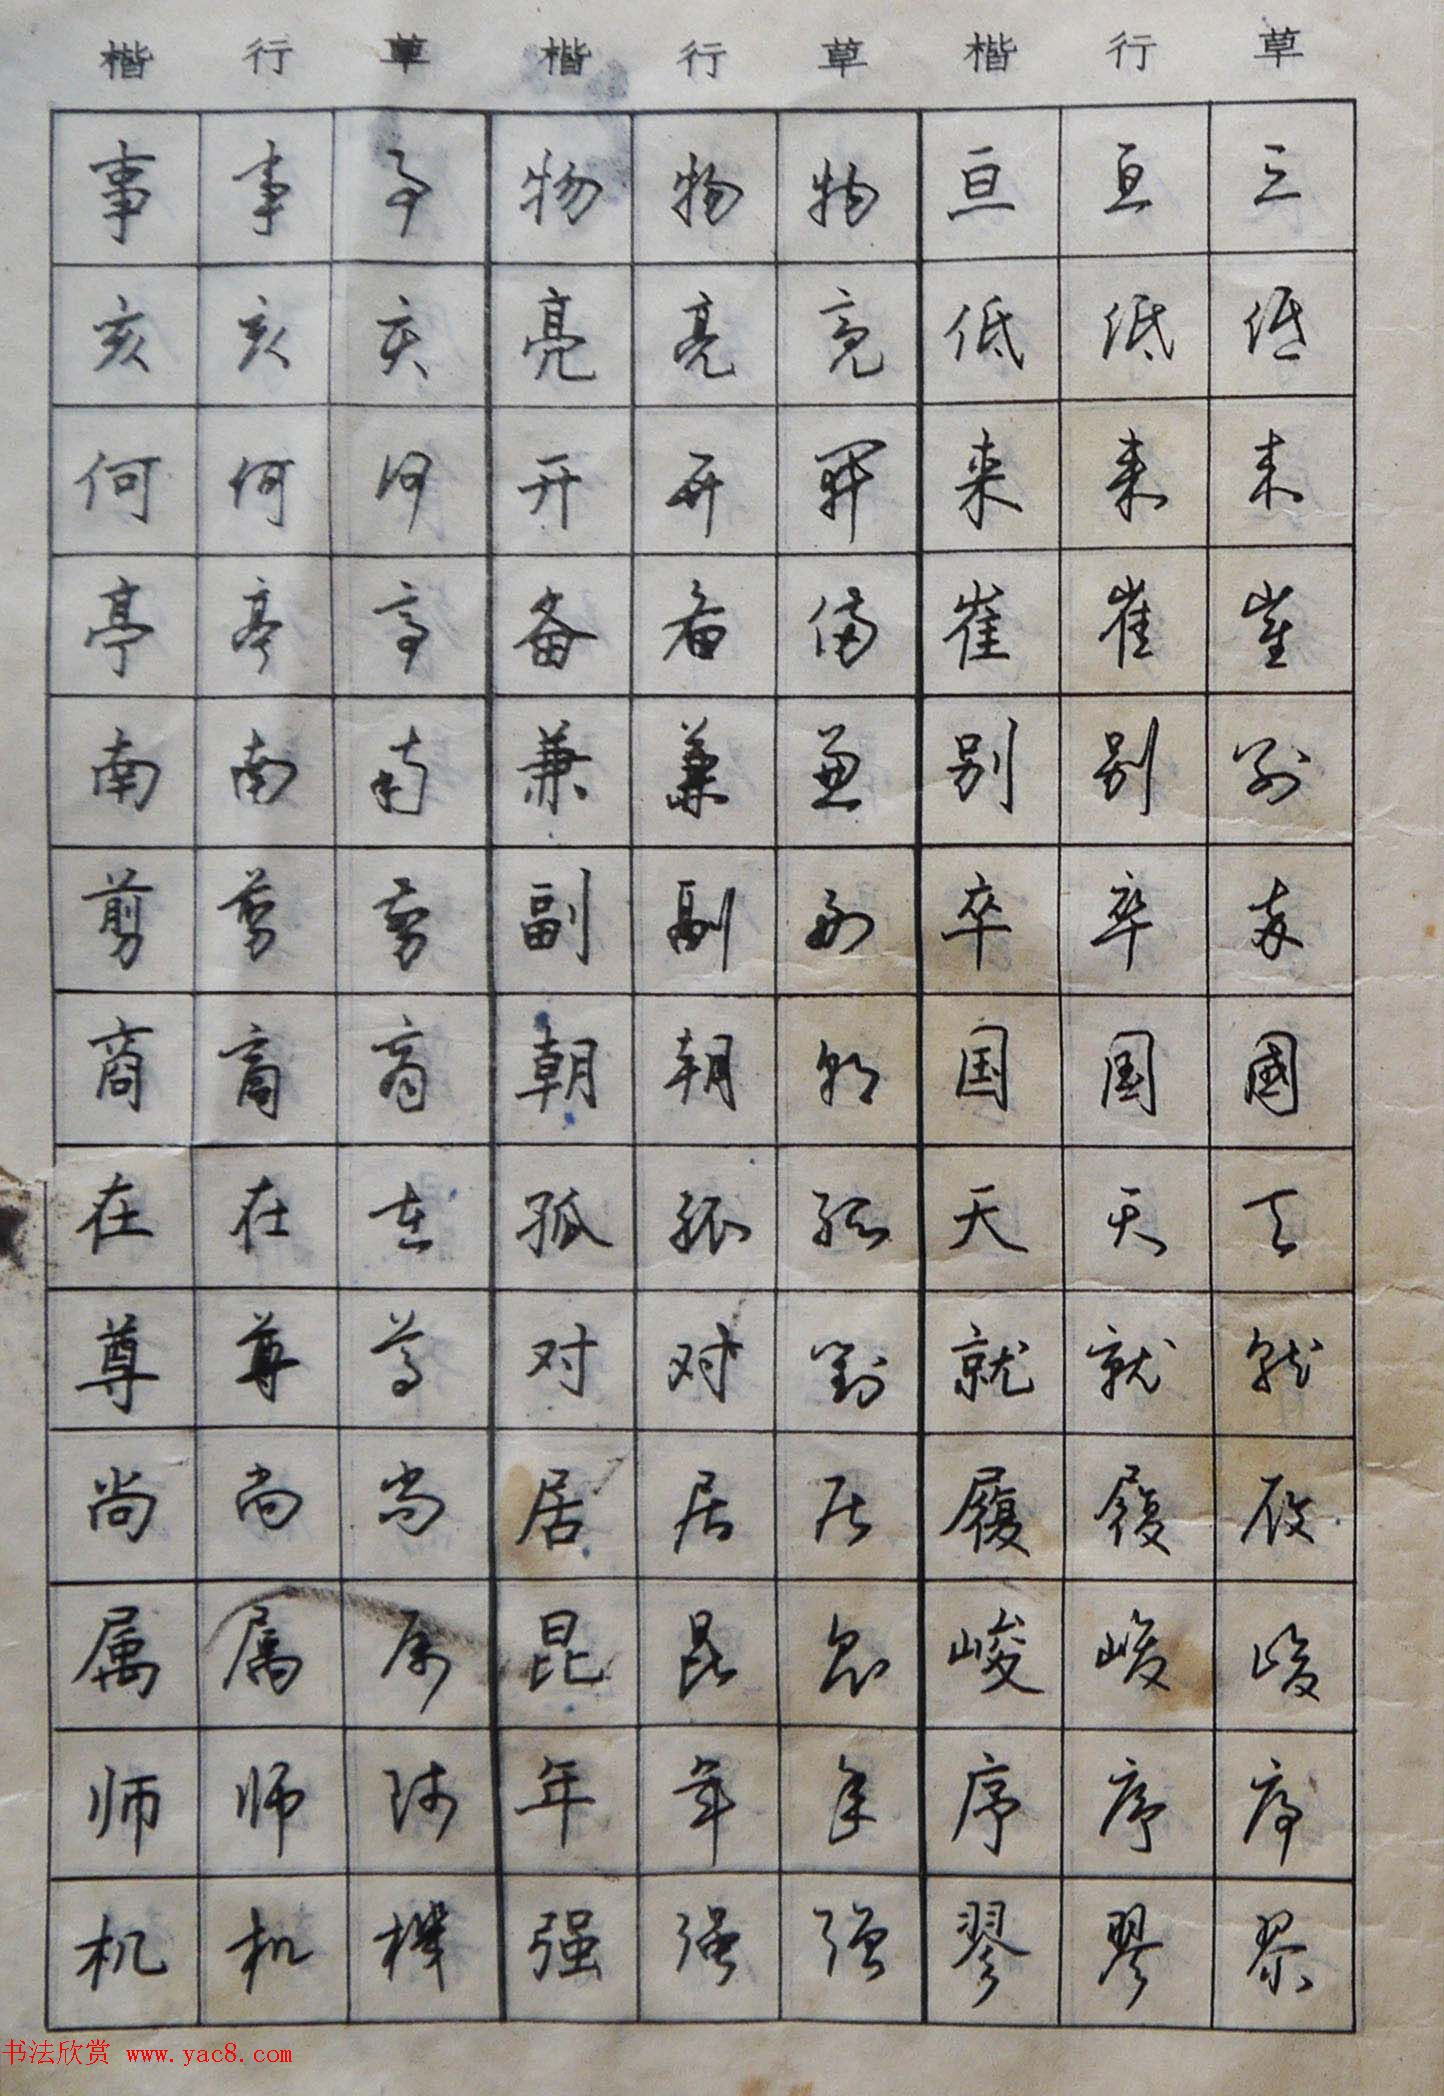 楷 行 草 楷 行 草 楷 行 草
事 事 事 物 物 物 亘 亘 亘
亥 亥 亥 亮 亮 亮 低 低 低
何 何 何 开 开 開 来 来 来
亭 亭 亭 备 备 備 崔 崔 崔
南 南 南 兼 兼 兼 别 别 别
剪 剪 剪 副 副 副 卒 卒 卒
商 商 商 朝 朝 朝 国 国 國
在 在 在 孤 孤 孤 天 天 天
尊 尊 尊 对 对 對 就 就 就
尚 尚 尚 居 居 居 履 履 履
属 属 属 昆 昆 昆 峻 峻 峻
师 师 师 年 年 年 序 序 序
机 机 機 强 强 强 翏 翏 翏
书法欣赏 www.yac8.com